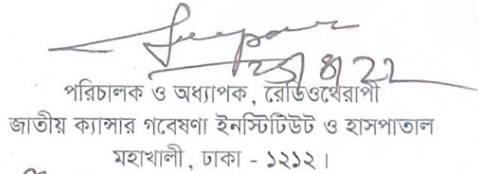 পরিচালক ও অধ্যাপক, রেডিওথেরাপী
জাতীয় ক্যান্সার গবেষণা ইনস্টিটিউট ও হাসপাতাল
মহাখালী, ঢাকা - ১২১২।